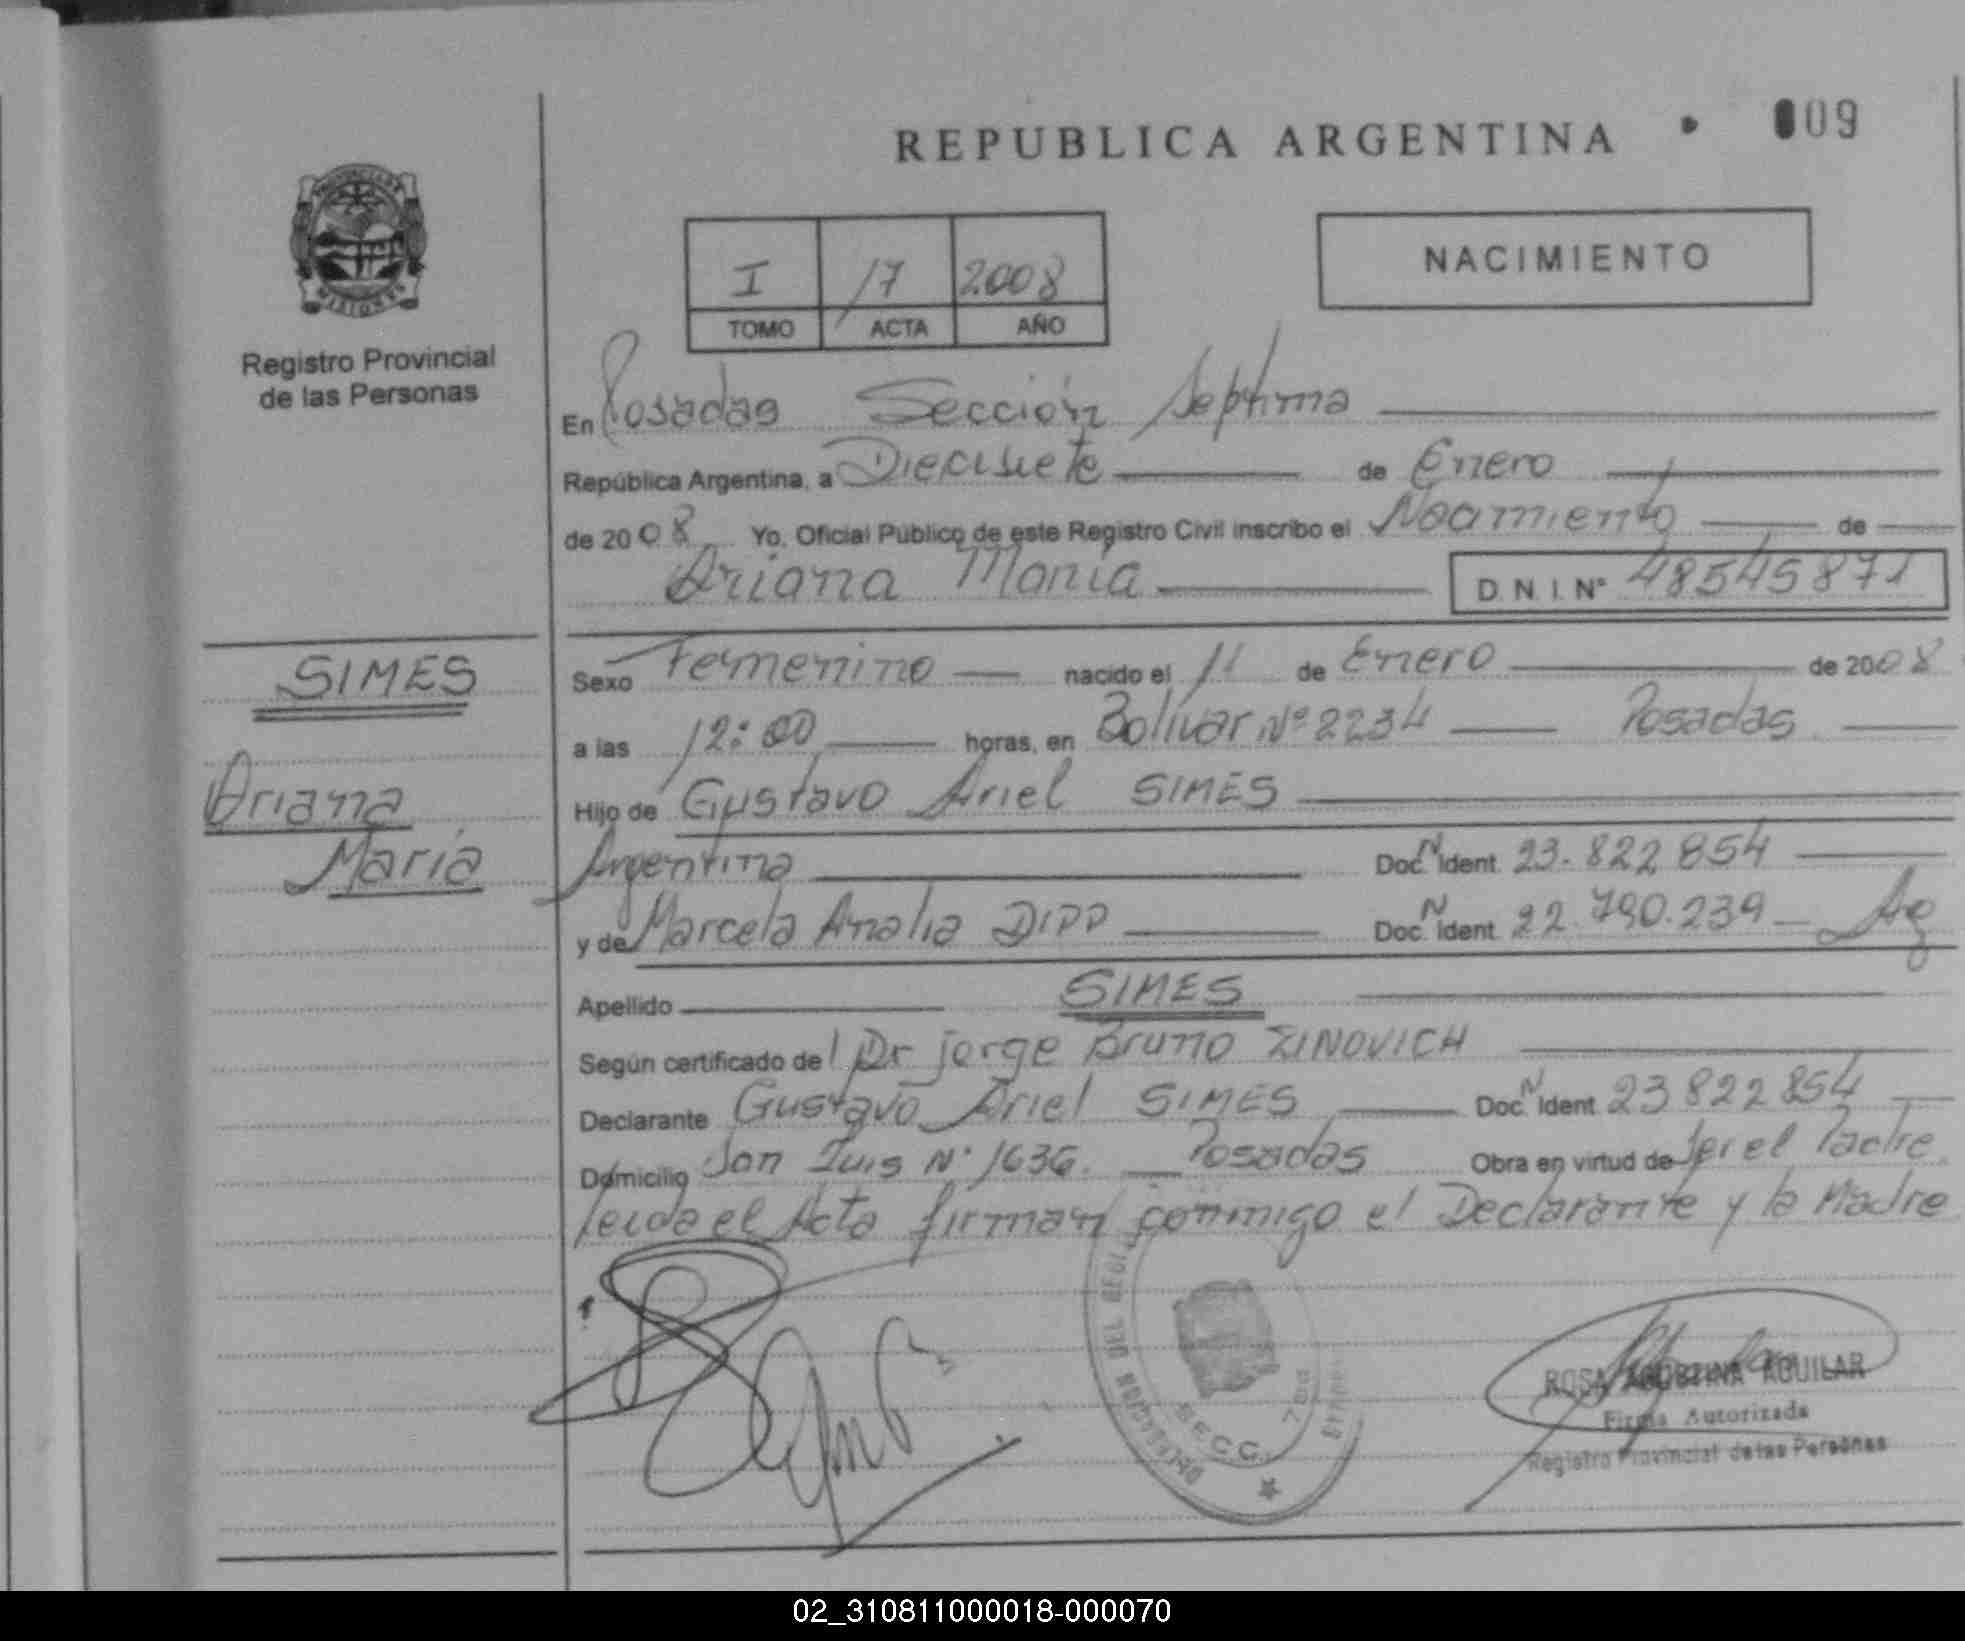 REPUBLICA ARGENTINA
009
PROVINCIA DE
MISIONES
Registro Provincial
de las Personas
I 17 2008
TOMO ACTA AÑO
NACIMIENTO
En Posadas Sección Septima
República Argentina, a Diecisiete de Enero
de 2008 Yo, Oficial Público de este Registro Civil inscribo el Nacimiento de
Ariana María D.N.I. Nº 48545871
SIMES
Ariana
María
Sexo Femenino nacido el 11 de Enero de 2008
a las 12:00 horas, en Bolívar Nº 2234 Posadas
Hijo de Gustavo Ariel SIMES
Argentina Doc. N Ident. 23.822.854
y de Marcela Analia DIDD Doc. N Ident. 22.790.239 Ag
Apellido SIMES
Según certificado del Dr Jorge Bruno ZINOVICH
Declarante Gustavo Ariel SIMES Doc. N Ident. 23822854
Domicilio San Luis Nº 1636. Posadas Obra en virtud de Ser el Padre
leida el Acta firman conmigo el Declarante y la Madre
ROSA AGUSTINA AGUILAR
Firma Autorizada
Registro Provincial de las Personas
02_310811000018-000070